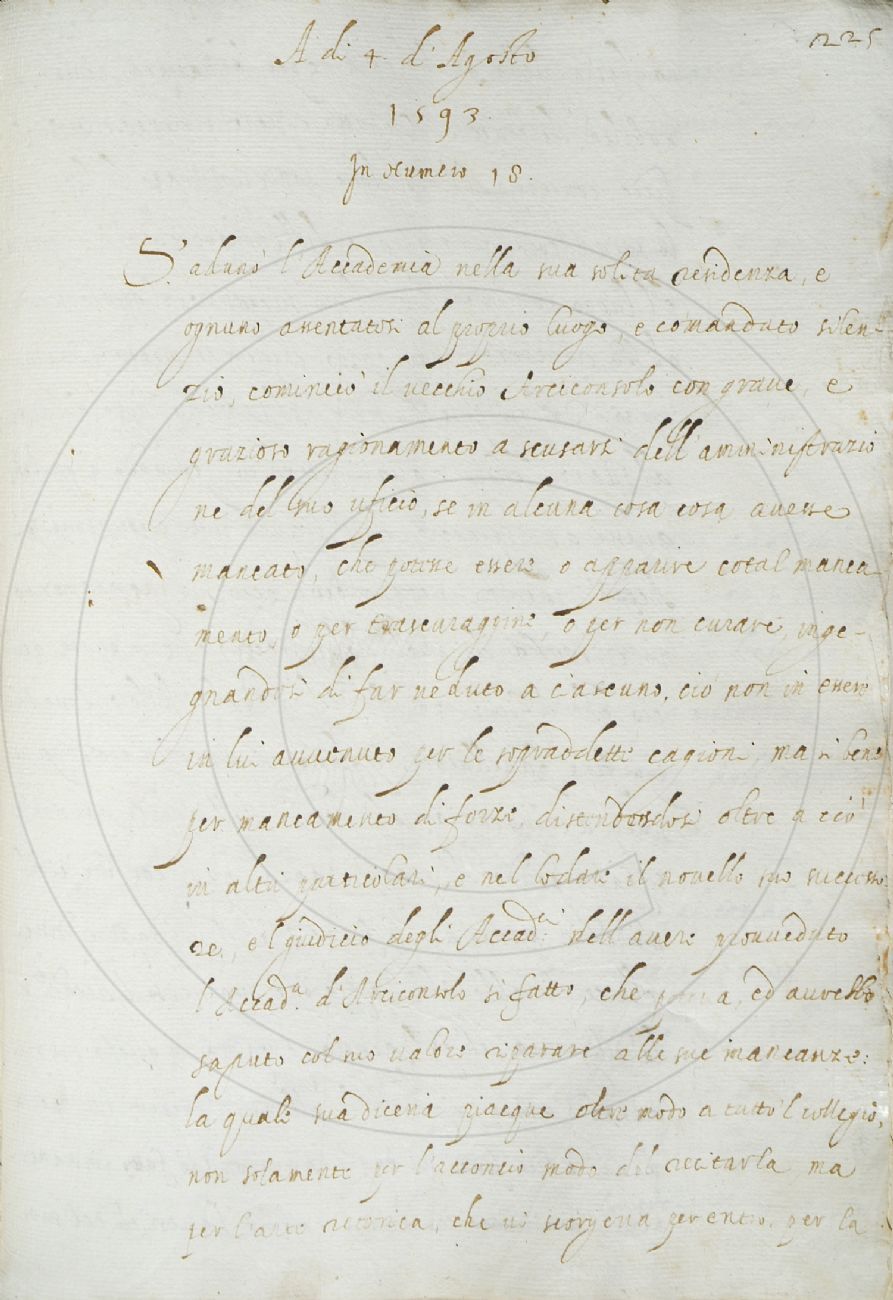 225
A' di 4 d'Agosto
1593.
In numero 18.
S'adunò l'Accademia nella sua solita residenza, e
ognuno assentatosi al proprio luogo, e comandato silen-
zio, cominciò il vecchio Arciconsolo con grave, e
grazioso ragionamento a scusarsi dell'amministrazio
ne del suo uficio, se in alcuna cosa cosa avesse
mancato, che potesse essere o apparire cotal manca-
mento, o per trascuraggine, o per non curare, inge-
gnandosi di far veduto a ciascuno, ciò non in essere
in lui avvenuto per le sopraddette cagioni, ma si bene
per mancamento di forze, distendendosi oltre a ciò
in altri particolari, e nel lodare il novello suo successo
re, e'l giudicio degli Accad.ci nell'avere provveduto
l'Accad.a d'Arciconsolo sì fatto, che ed avrebbe
saputo col suo valore riparare alle sue mancanze:
la quale sua diceria piacque oltre modo a tutto'l collegio,
non solamente per l'acconcio modo del recitarla, ma
per l'arte retorica, che vi scorgeva per entro, per la